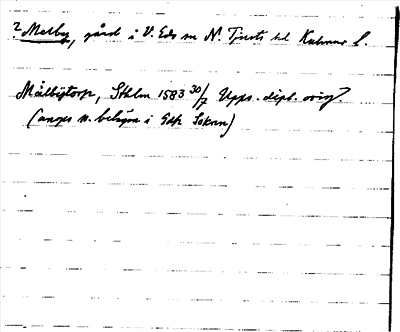 ? Melby, gård i V. Eds sn N. Tjusts hd Kalmar l.
Målbijtorp, Sthlm 1583 30/7 Upps. dipl. orig.
(anges v. belägen i Edz Soknn)